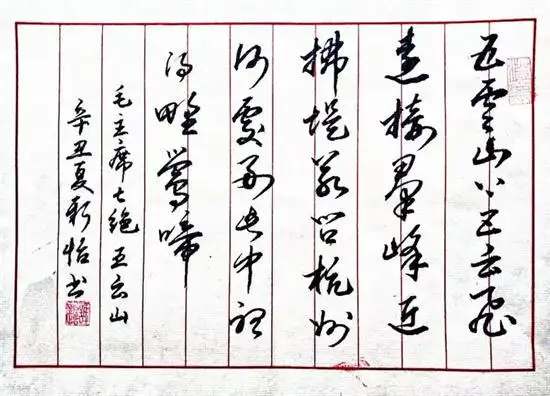 五雲山上五云飛
遠接羣峰近
拂堤若问杭州
何處好此中聽
得野鶯啼
毛主席七绝五云山
辛丑夏怡书